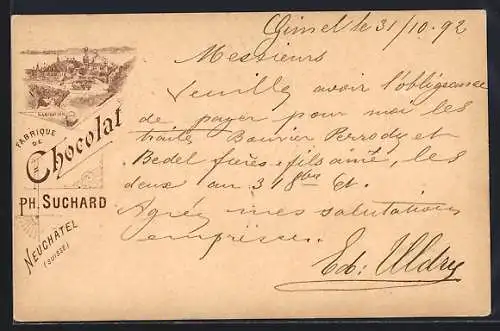 Gimel le 31/10.92
Messieurs
Veuillez avoir l'obligeance
de payer pour moi les
traites Bouvier Perrody et
Bedel frères & fils aîné, les
deux au 31 8bre ct.
Agréez mes salutations
empressées.
Ed: Uldry
FABRIQUE
DE
Chocolat
PH. SUCHARD
NEUCHÂTEL
(SUISSE)